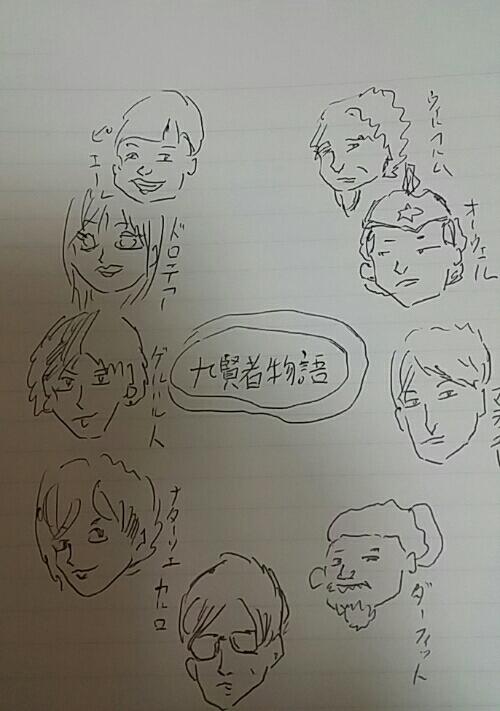 九賢者物語
ピエール
ドロテア
ゲルハルト
ナターリエ
カルロ
ウィルフルム
オーウェル
ダーフィット